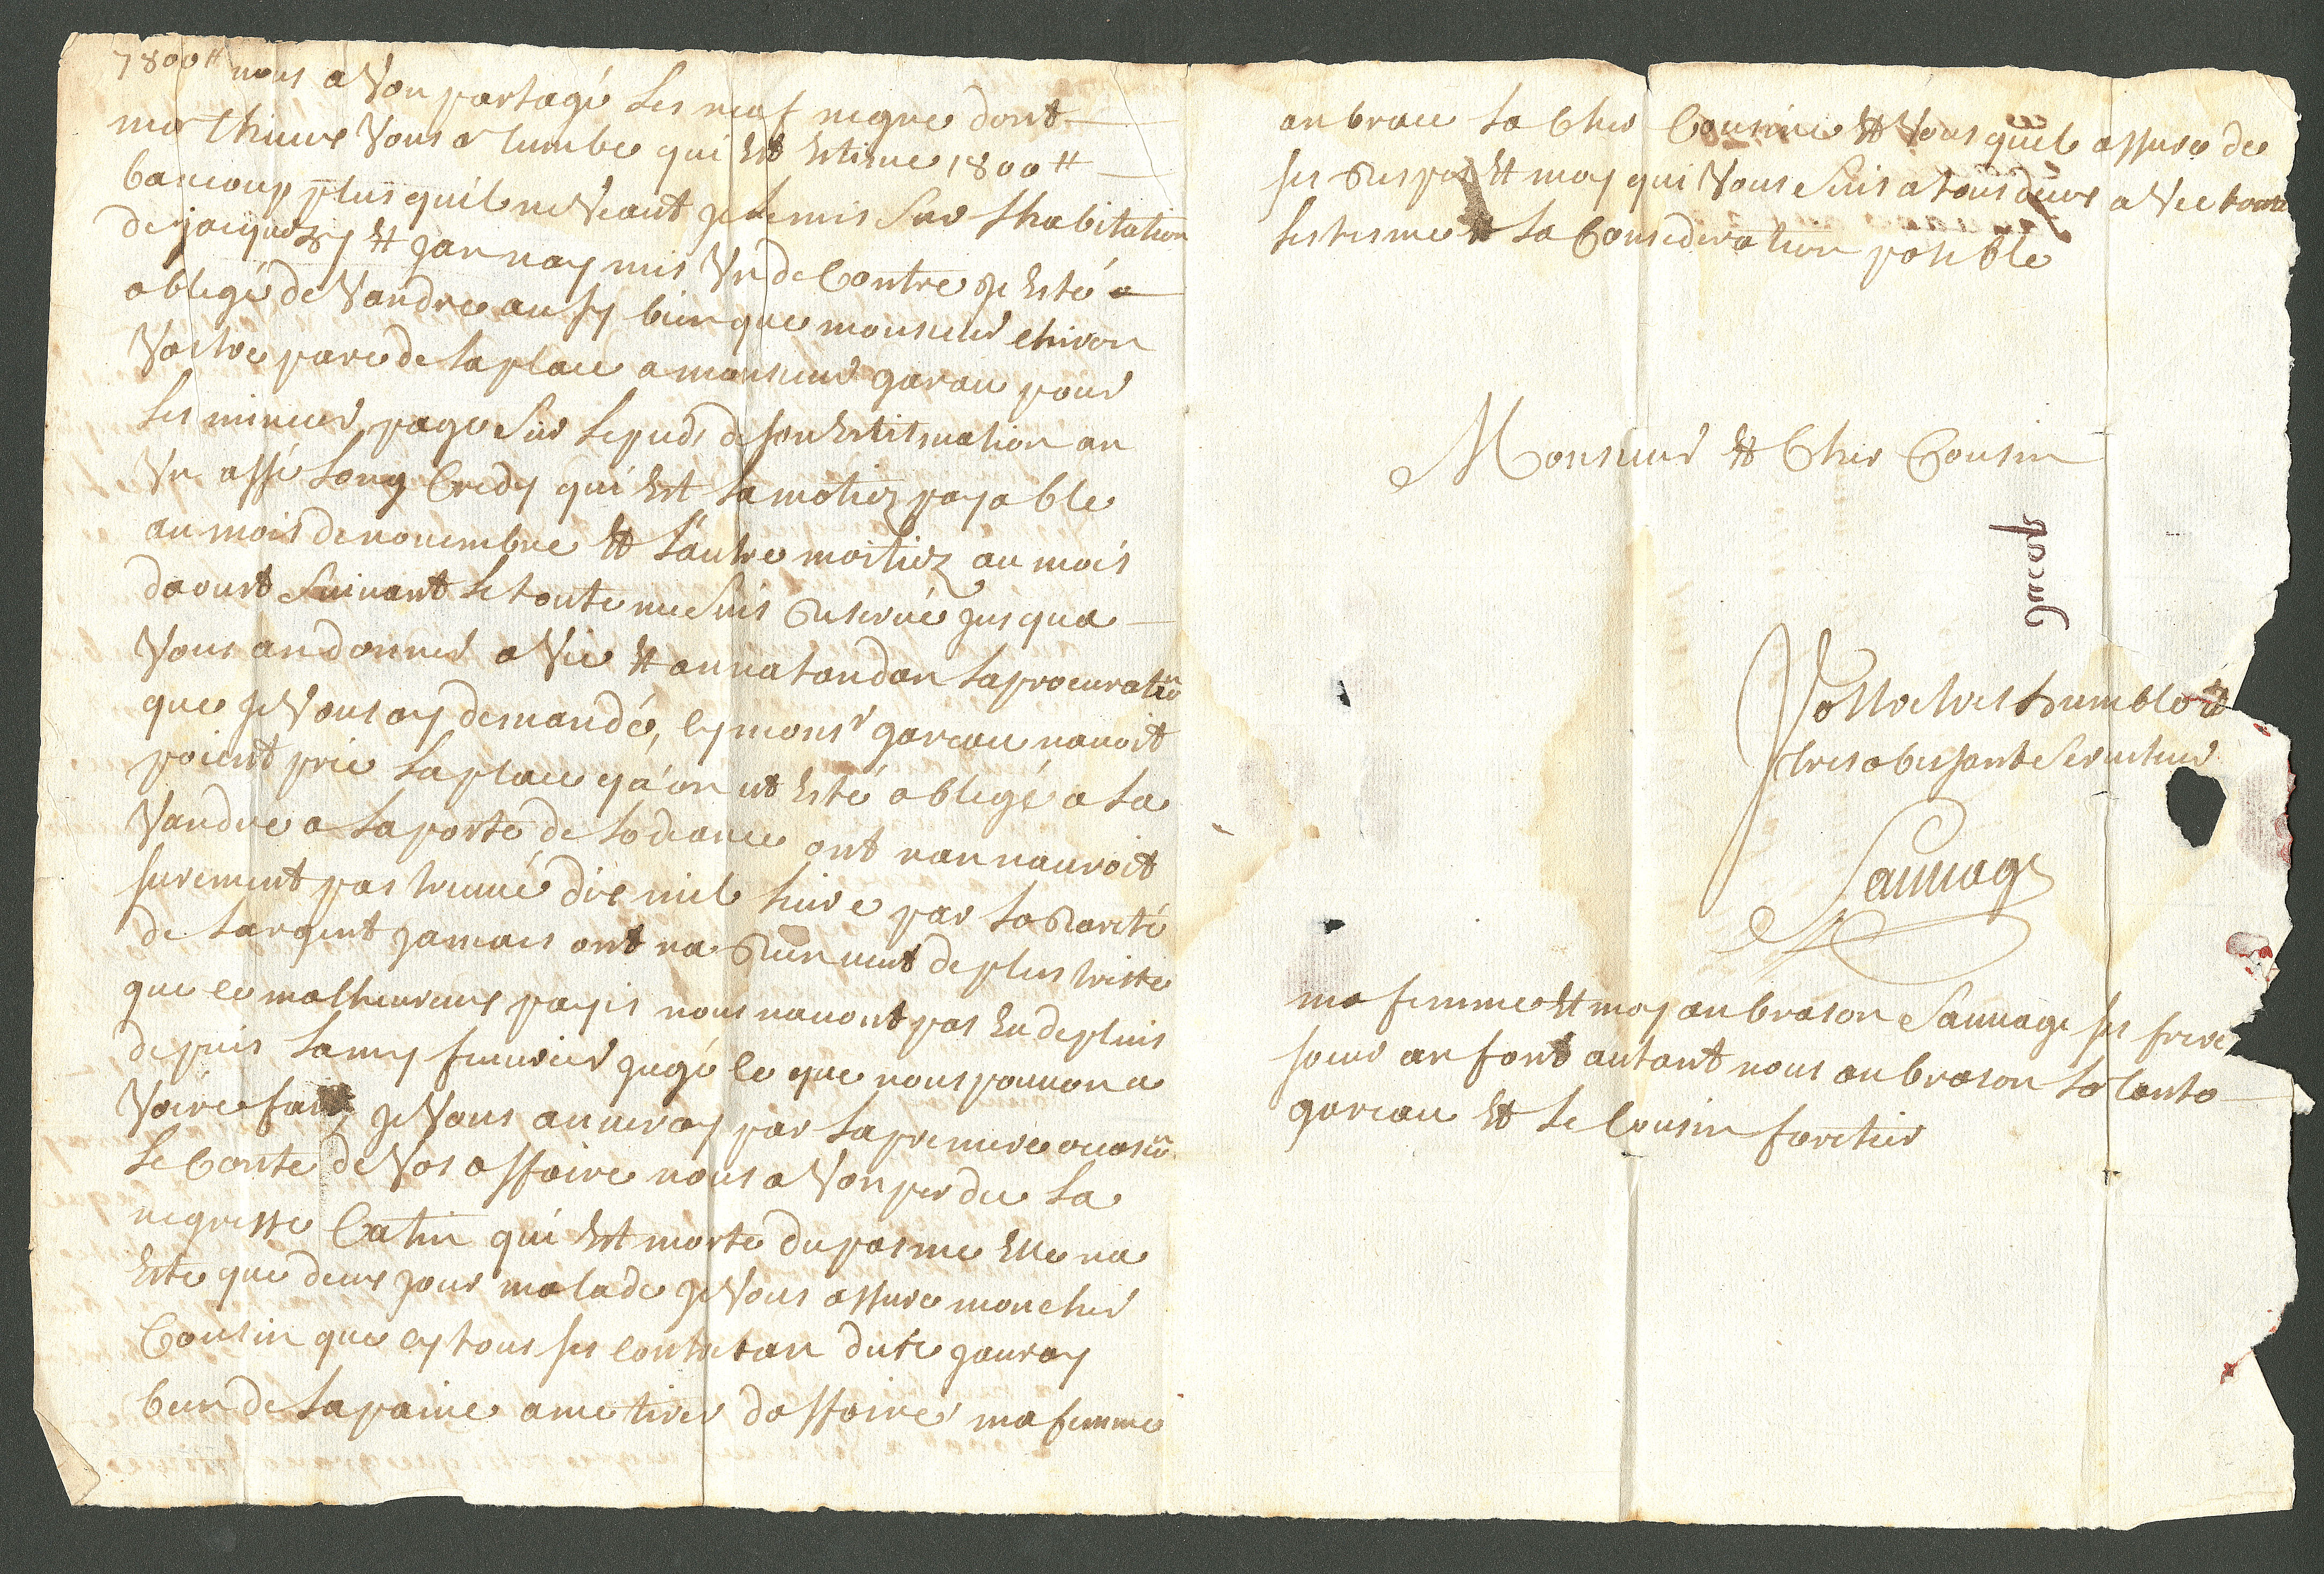 7800# nous a Von partagé Les neuf negre dont
mathieux Vous a tumbe qui Est Estime 1800#
baucoup plus quil ne Veaut je Le mis Sur Lhabitation
de jacquezy Et jan nay mis Un de Contre je Esté a
obligé de Vandre ausy bien que monsieur chiron
Vostre pare de La place a monsieur garau pour
Les mineur, page Sur Le pieds de son Estitmation an
Un assé Long Credy qui Est La motiez payable
au mois de novembre Et Lautre moitiez au mois
daoust Suivant Le toute me Suis Reservé jusqua
Vous an donner a Vie Et an na tandan La procuration
que je Vous ay demandé, cy monsr gareau navoit
point prie La place qu'on ut Esté obligé a La
Vandre a La porte de Lodiance ont nan nauroit
surement pas truvé dix mil Livre par La Rareté
de Largent jamais ont na Rien veut de plus triste
que ce malheureux payis nous navont pas Eu de pluis
depuis Lamy fevrier jugé ce que nous pouvon a
Voire fait, je Vous anveray par La premiere ocasion
Le Conte de Vos affaire nous a Von perdu La
negresse Catin qui Est morte du pasme Elle na
Este que deux jour malade je Vous assure mon cher
Cousin que cy tous ses contretan dure jauray
bien de La paine a me tirer daffaire ma femme
anbrace La Cher Cousine Et Vous quil assure de
ses Respes Et moy qui Vous Suis a tous deux a Vec toute
Lestesme Et La Consideration posible
Monsieur Et Cher Cousin
Vostre tres humble Et
tres obeissant Serviteur
Sauvage
ma femme Et moy anbrason Sauvage ses frere
soeur an font autant nous anbrason La tanto
gareau Et Le Cousin foretier